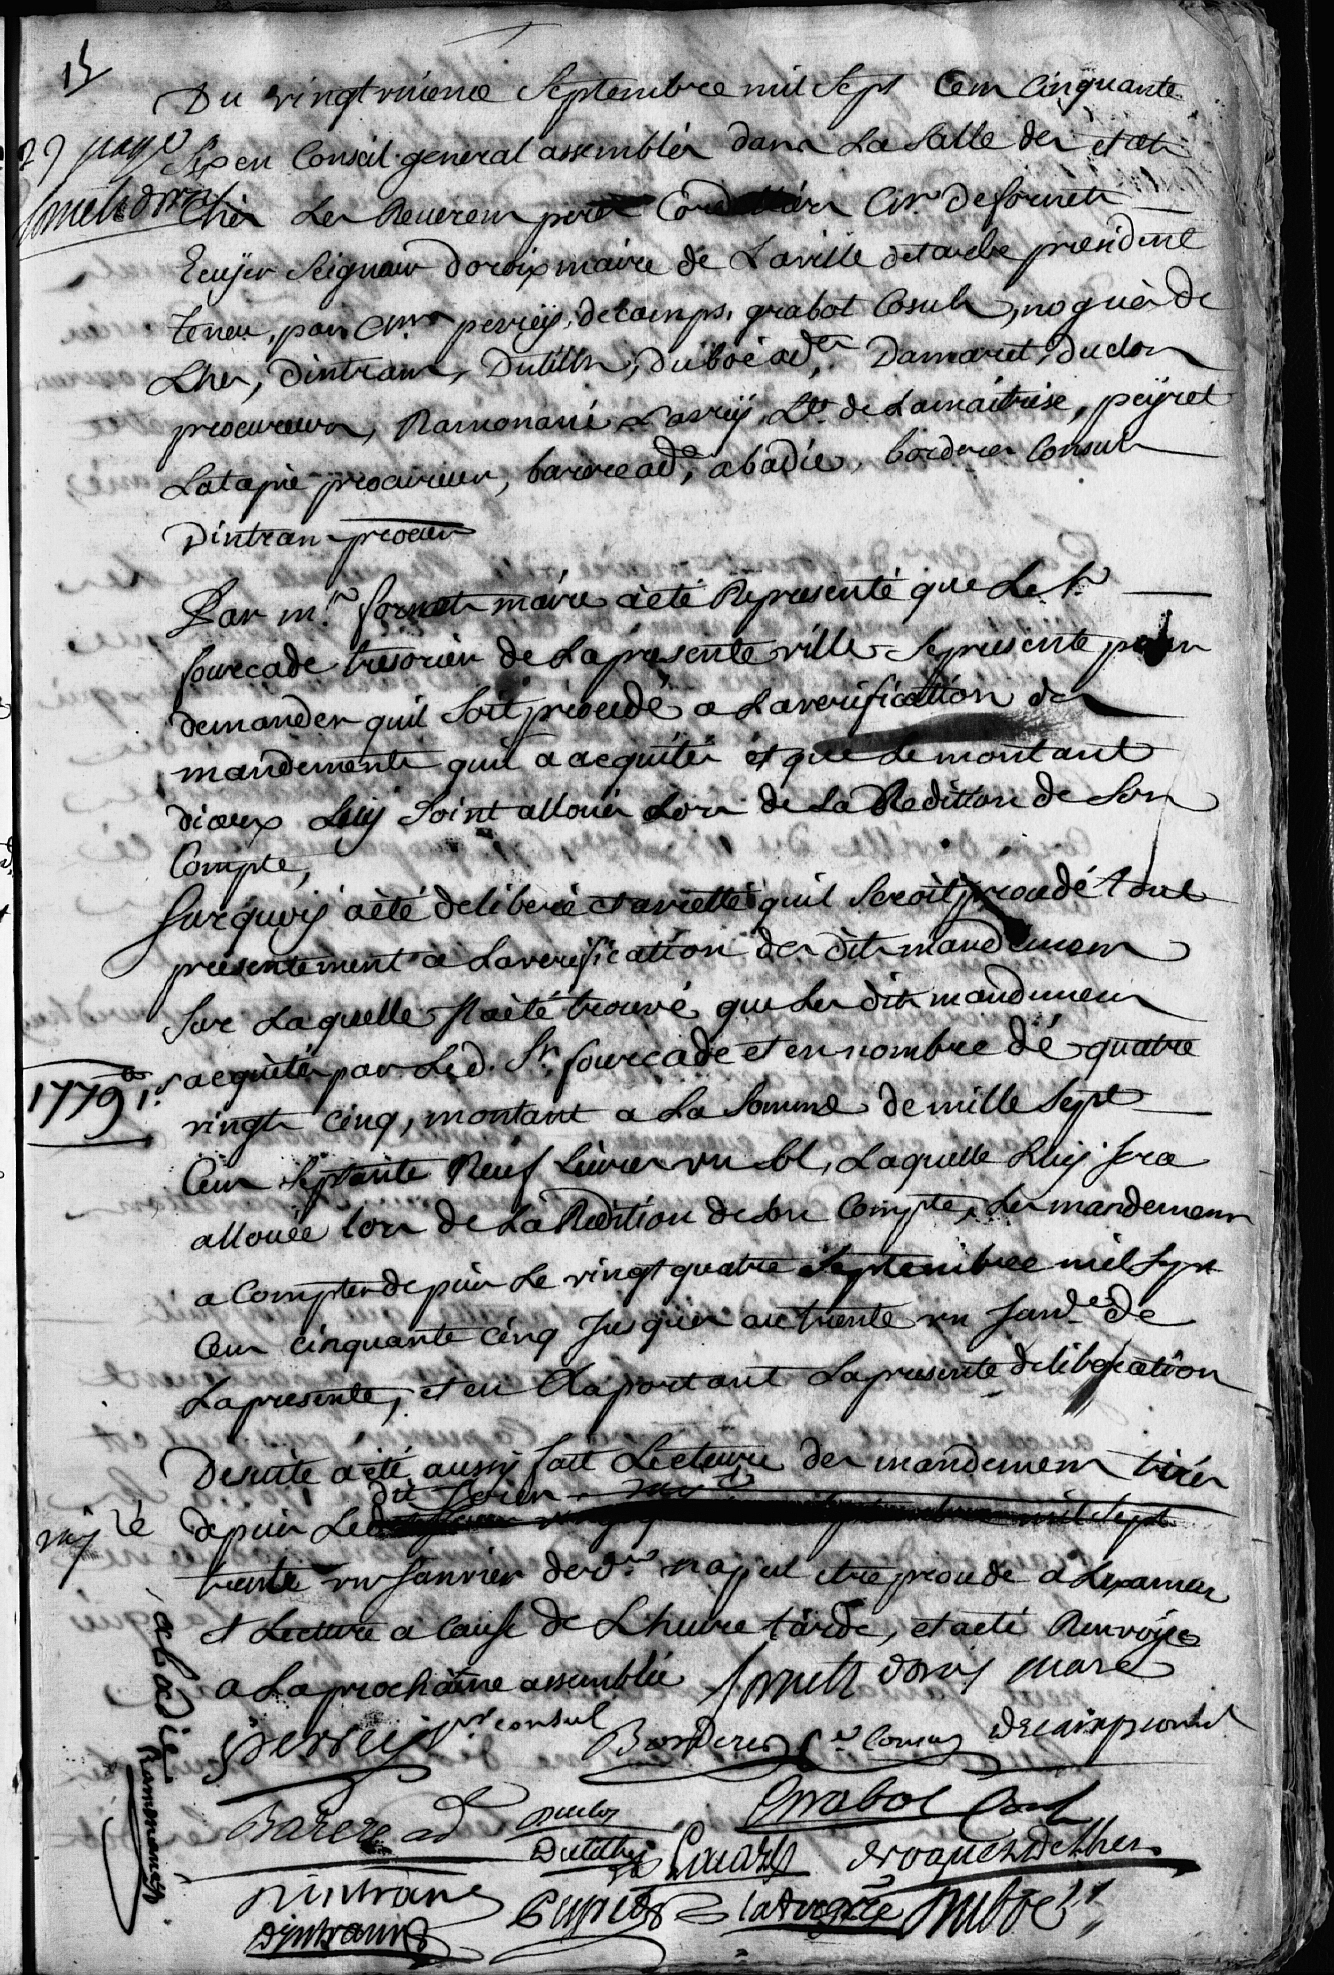 15
Du vingt Septembre mil Sept Cens Cinquante
29 page
Six en Conseil general assemblés dans La Salle des etats
fornets doroix
Chès Les Reverens peres Cordeliers Mr. de fornets
Ecuyer Seigneur doroix maire de Laville detarbe president
teneu, par Mrs perrey, decamps, grabot Cosuls, noguès de
Lher, dintrans, Dutilh, duboé ad.er Damaret, duclos
procureurs, Ramonané Larrey Lt. de Lamaitrise, peÿret
Latapie procureur, barere ad.e, abadie, borderes Consuls
Dintran procur
Par mr. fornets maire aeté Representé que Le Sr.
fourcade tresorier de Lapresente ville Sepresente pour
demander quil Soit procudé a Laverification des
mandements quil a acquités et que Le montant
diceux Luy Soint alloués Lors de La Redition de Son
Compte,
Surquoy aèté deliberé et arretté quil Seroit procudé tout
presentement a Laverification des dits mandemens
Sur Laquelle Il aèté trouvé que Les dits mandemens
1779 1s
acquités par Led. Sr. fourcade et en nombre de quatre
vingts cinq, montant a La Somme de mille Sept
Cens Septante Neuf Livres un Sol, Laquelle Luy Sera
allouée lors de La Redition de Son Compte, Les mandemens
a Compter depuis Le vingt quatre Septembre mil Sept
Cens cinquante cinq Jusques au trente un Janv.er de
Lapresente, et en Raportant Lapresente deliberation
Desuite aèté aussy fait Lecture des mandemens tirés
depuis Led
trente un Janvier der.er na put etre procudé a Lexamen
et Lecture a Cause de Lheure tarde, et aeté Renvoyé
a Laprochaine assemblée fornets doroix maire
perrey pr consul Borderes Consul decamps consul
Barere ad duclos Grabot Consul
Dutilh noguez de Lher
Dintrans Peyret Duboé
Dintrans
abadie
Ramonané